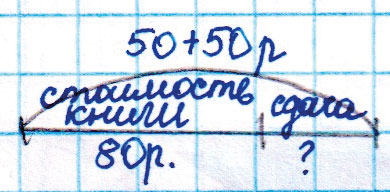 50+50р
стоимость сдача
книги
80р. ?